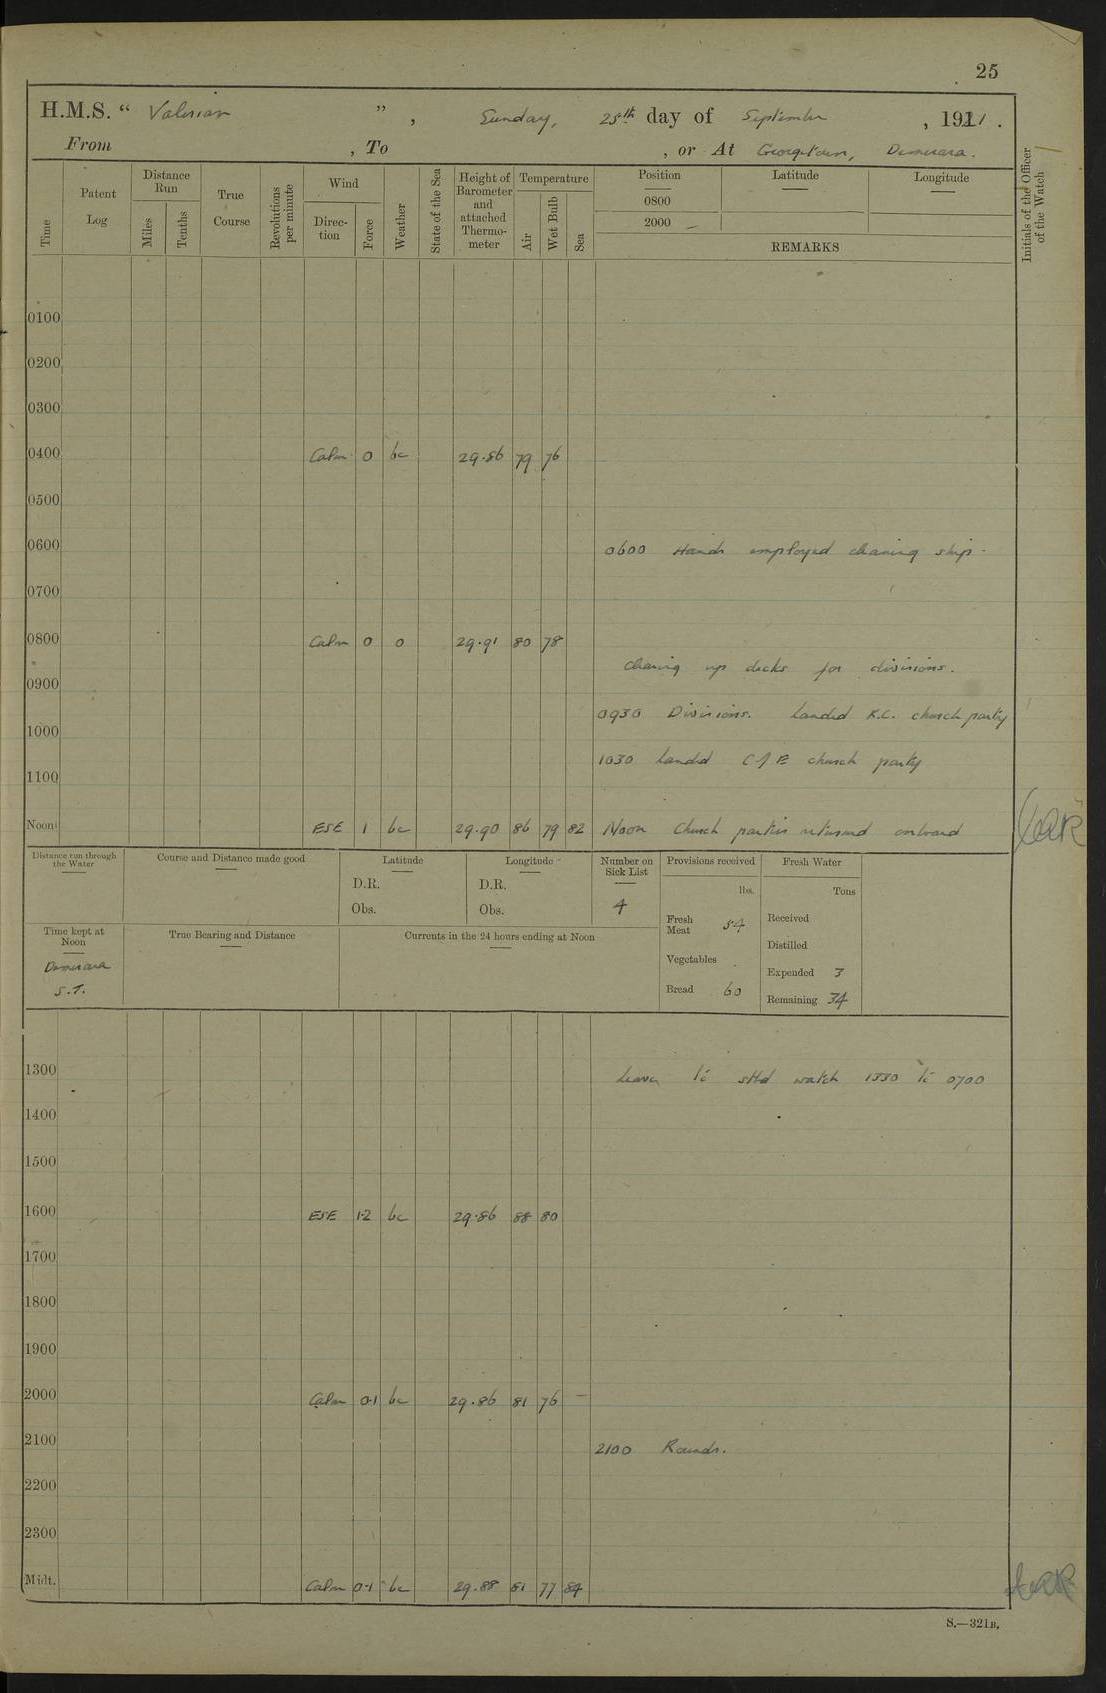 25
H.M.S. “ Valerian ”, Sunday, 25th day of September, 1921.
From , To , or At Georgetown, Demerara.
Time
Patent Log
Distance Run
Miles
Tenths
True Course
Revolutions per minute
Wind
Direction
Force
Weather
State of the Sea
Height of Barometer and attached Thermometer
Temperature
Air
Wet Bulb
Sea
Position
0800
2000 –
Latitude
Longitude
REMARKS
Initials of the Officer of the Watch
0100
0200
0300
0400 Calm 0 bc 29.86 79 76
0500
0600 0600 Hands employed cleaning ship.
0700
0800 Calm 0 o 29.91 80 78
Clearing up decks for divisions.
0900
0930 Divisions. Landed R.C. church party
1000
1030 Landed C of E church party
1100
Noon ESE 1 bc 29.90 86 79 82 Noon Church parties returned onboard
Distance run through the Water
Course and Distance made good
Latitude
D.R.
Obs.
Longitude
D.R.
Obs.
Number on Sick List
4
Provisions received
lbs.
Fresh Meat 54
Vegetables .
Bread 60
Fresh Water
Tons
Received
Distilled
Expended 3
Remaining 34
Time kept at Noon
Demerara
S.T.
True Bearing and Distance
Currents in the 24 hours ending at Noon
1300 Leave to stbd watch 1330 to 0700
1400
1500
1600 ESE 1-2 bc 29.86 88 80
1700
1800
1900
2000 Calm 0-1 bc 29.86 81 76 –
2100 2100 Rounds.
2200
2300
Midt. Calm 0-1 bc 29.88 81 77 84
S.—321B.